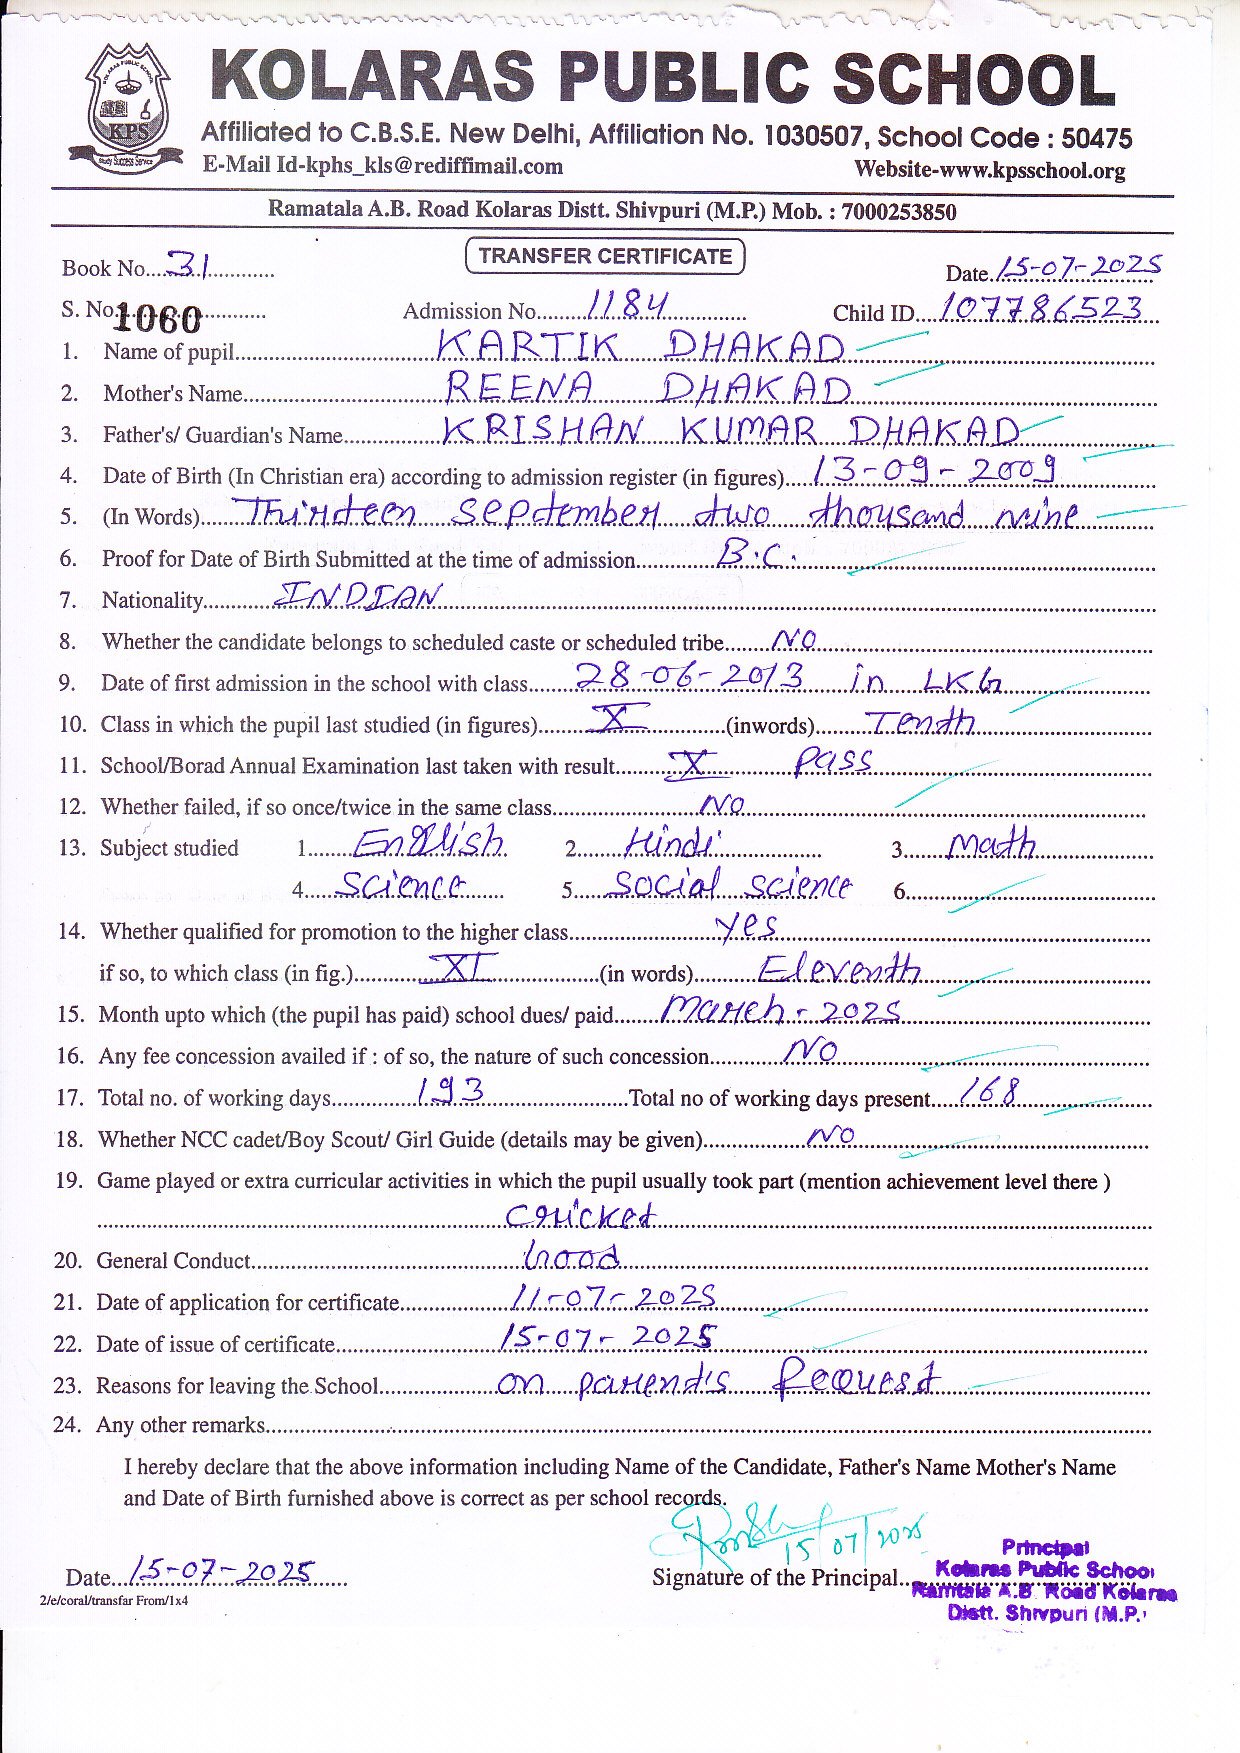 KOLARAS PUBLIC SCHOOL
KPS
Study Success Service
Affiliated to C.B.S.E. New Delhi, Affiliation No. 1030507, School Code : 50475
E-Mail Id-kphs_kls@rediffimail.com Website-www.kpsschool.org
Ramatala A.B. Road Kolaras Distt. Shivpuri (M.P.) Mob. : 7000253850
TRANSFER CERTIFICATE
Book No....31............ Date.15-07-2025
S. No.1060............ Admission No........1184............ Child ID....107786523...
1. Name of pupil..........KARTIK DHAKAD..........
2. Mother's Name..........REENA DHAKAD..........
3. Father's/ Guardian's Name..........KRISHAN KUMAR DHAKAD..........
4. Date of Birth (In Christian era) according to admission register (in figures)....13-09-2009
5. (In Words).....Thirteen September two thousand nine
6. Proof for Date of Birth Submitted at the time of admission..........B.C...........
7. Nationality..........INDIAN..........
8. Whether the candidate belongs to scheduled caste or scheduled tribe.......NO..........
9. Date of first admission in the school with class.......28-06-2013 in LKG..........
10. Class in which the pupil last studied (in figures)..........X..........(inwords)..........Tenth..........
11. School/Borad Annual Examination last taken with result..........X..........Pass..........
12. Whether failed, if so once/twice in the same class..........NO..........
13. Subject studied 1.......English 2.......Hindi.......... 3.......Math..........
4......Science...... 5.......Social Science 6..........
14. Whether qualified for promotion to the higher class..........yes..........
if so, to which class (in fig.)..........XI..........(in words)..........Eleventh..........
15. Month upto which (the pupil has paid) school dues/ paid.......March-2025..........
16. Any fee concession availed if : of so, the nature of such concession..........NO..........
17. Total no. of working days..........193..........Total no of working days present.....168..........
18. Whether NCC cadet/Boy Scout/ Girl Guide (details may be given)..........NO..........
19. Game played or extra curricular activities in which the pupil usually took part (mention achievement level there )
..........Cricket..........
20. General Conduct..........Good..........
21. Date of application for certificate..........11-07-2025..........
22. Date of issue of certificate..........15-07-2025..........
23. Reasons for leaving the School..........on parent's Request..........
24. Any other remarks..........
I hereby declare that the above information including Name of the Candidate, Father's Name Mother's Name
and Date of Birth furnished above is correct as per school records.
15/07/2025
Principal
Kolaras Public School
Date...15-07-2025...... Signature of the Principal... Ramtala A.B. Road Kolaras
2/e/coral/transfar From/1x4 Distt. Shivpuri (M.P.)